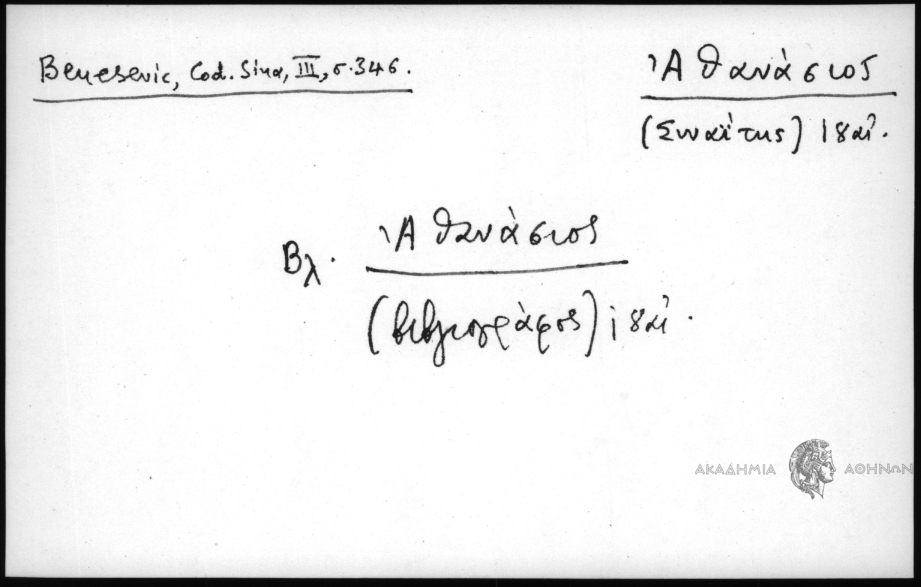 Benesevic, Cod. Sina, III, σ. 346.
Ἀθανάσιος
(Σιναΐτης) 18 αἰ.
Βλ. Ἀθανάσιος
(βιβλιογράφος) 18 αἰ.
ΑΚΑΔΗΜΙΑ ΑΘΗΝΩΝ